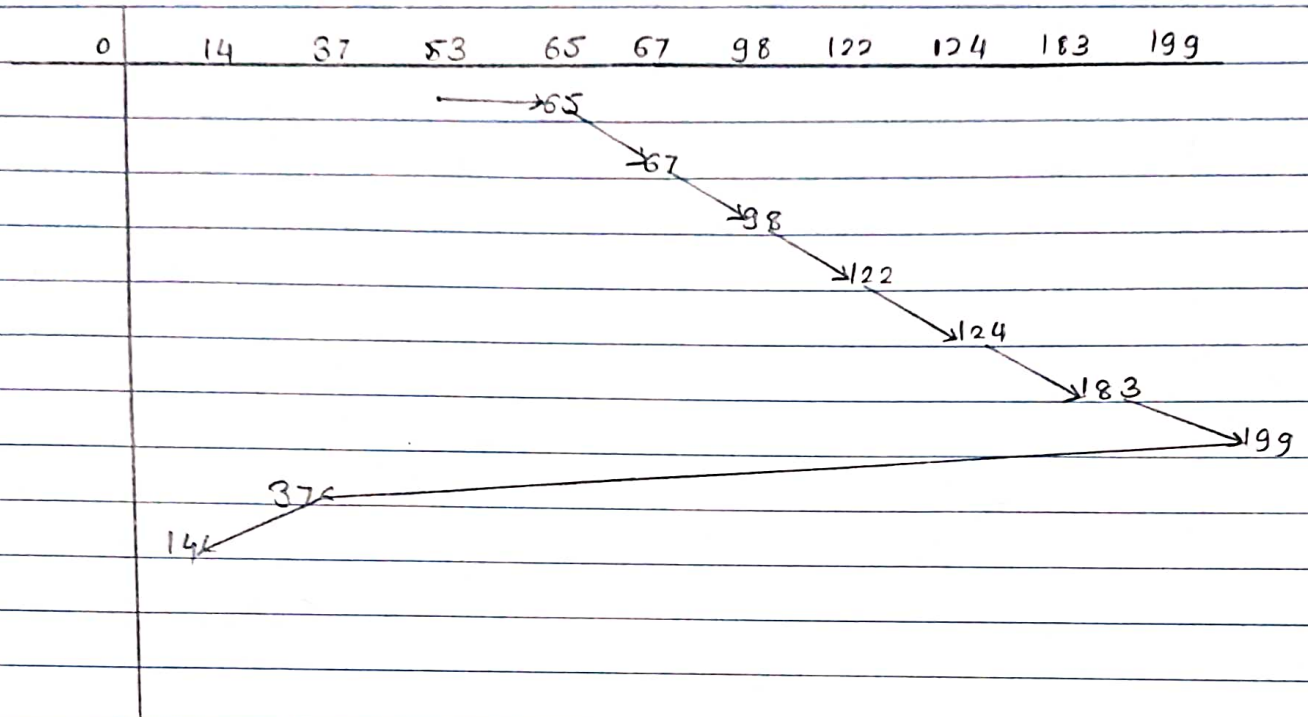 0 14 37 53 65 67 98 122 124 183 199
65
67
98
122
124
183
199
37
14